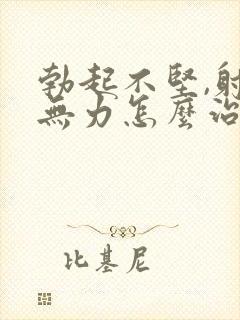 勃起不堅,射
無力怎麼治
比基尼